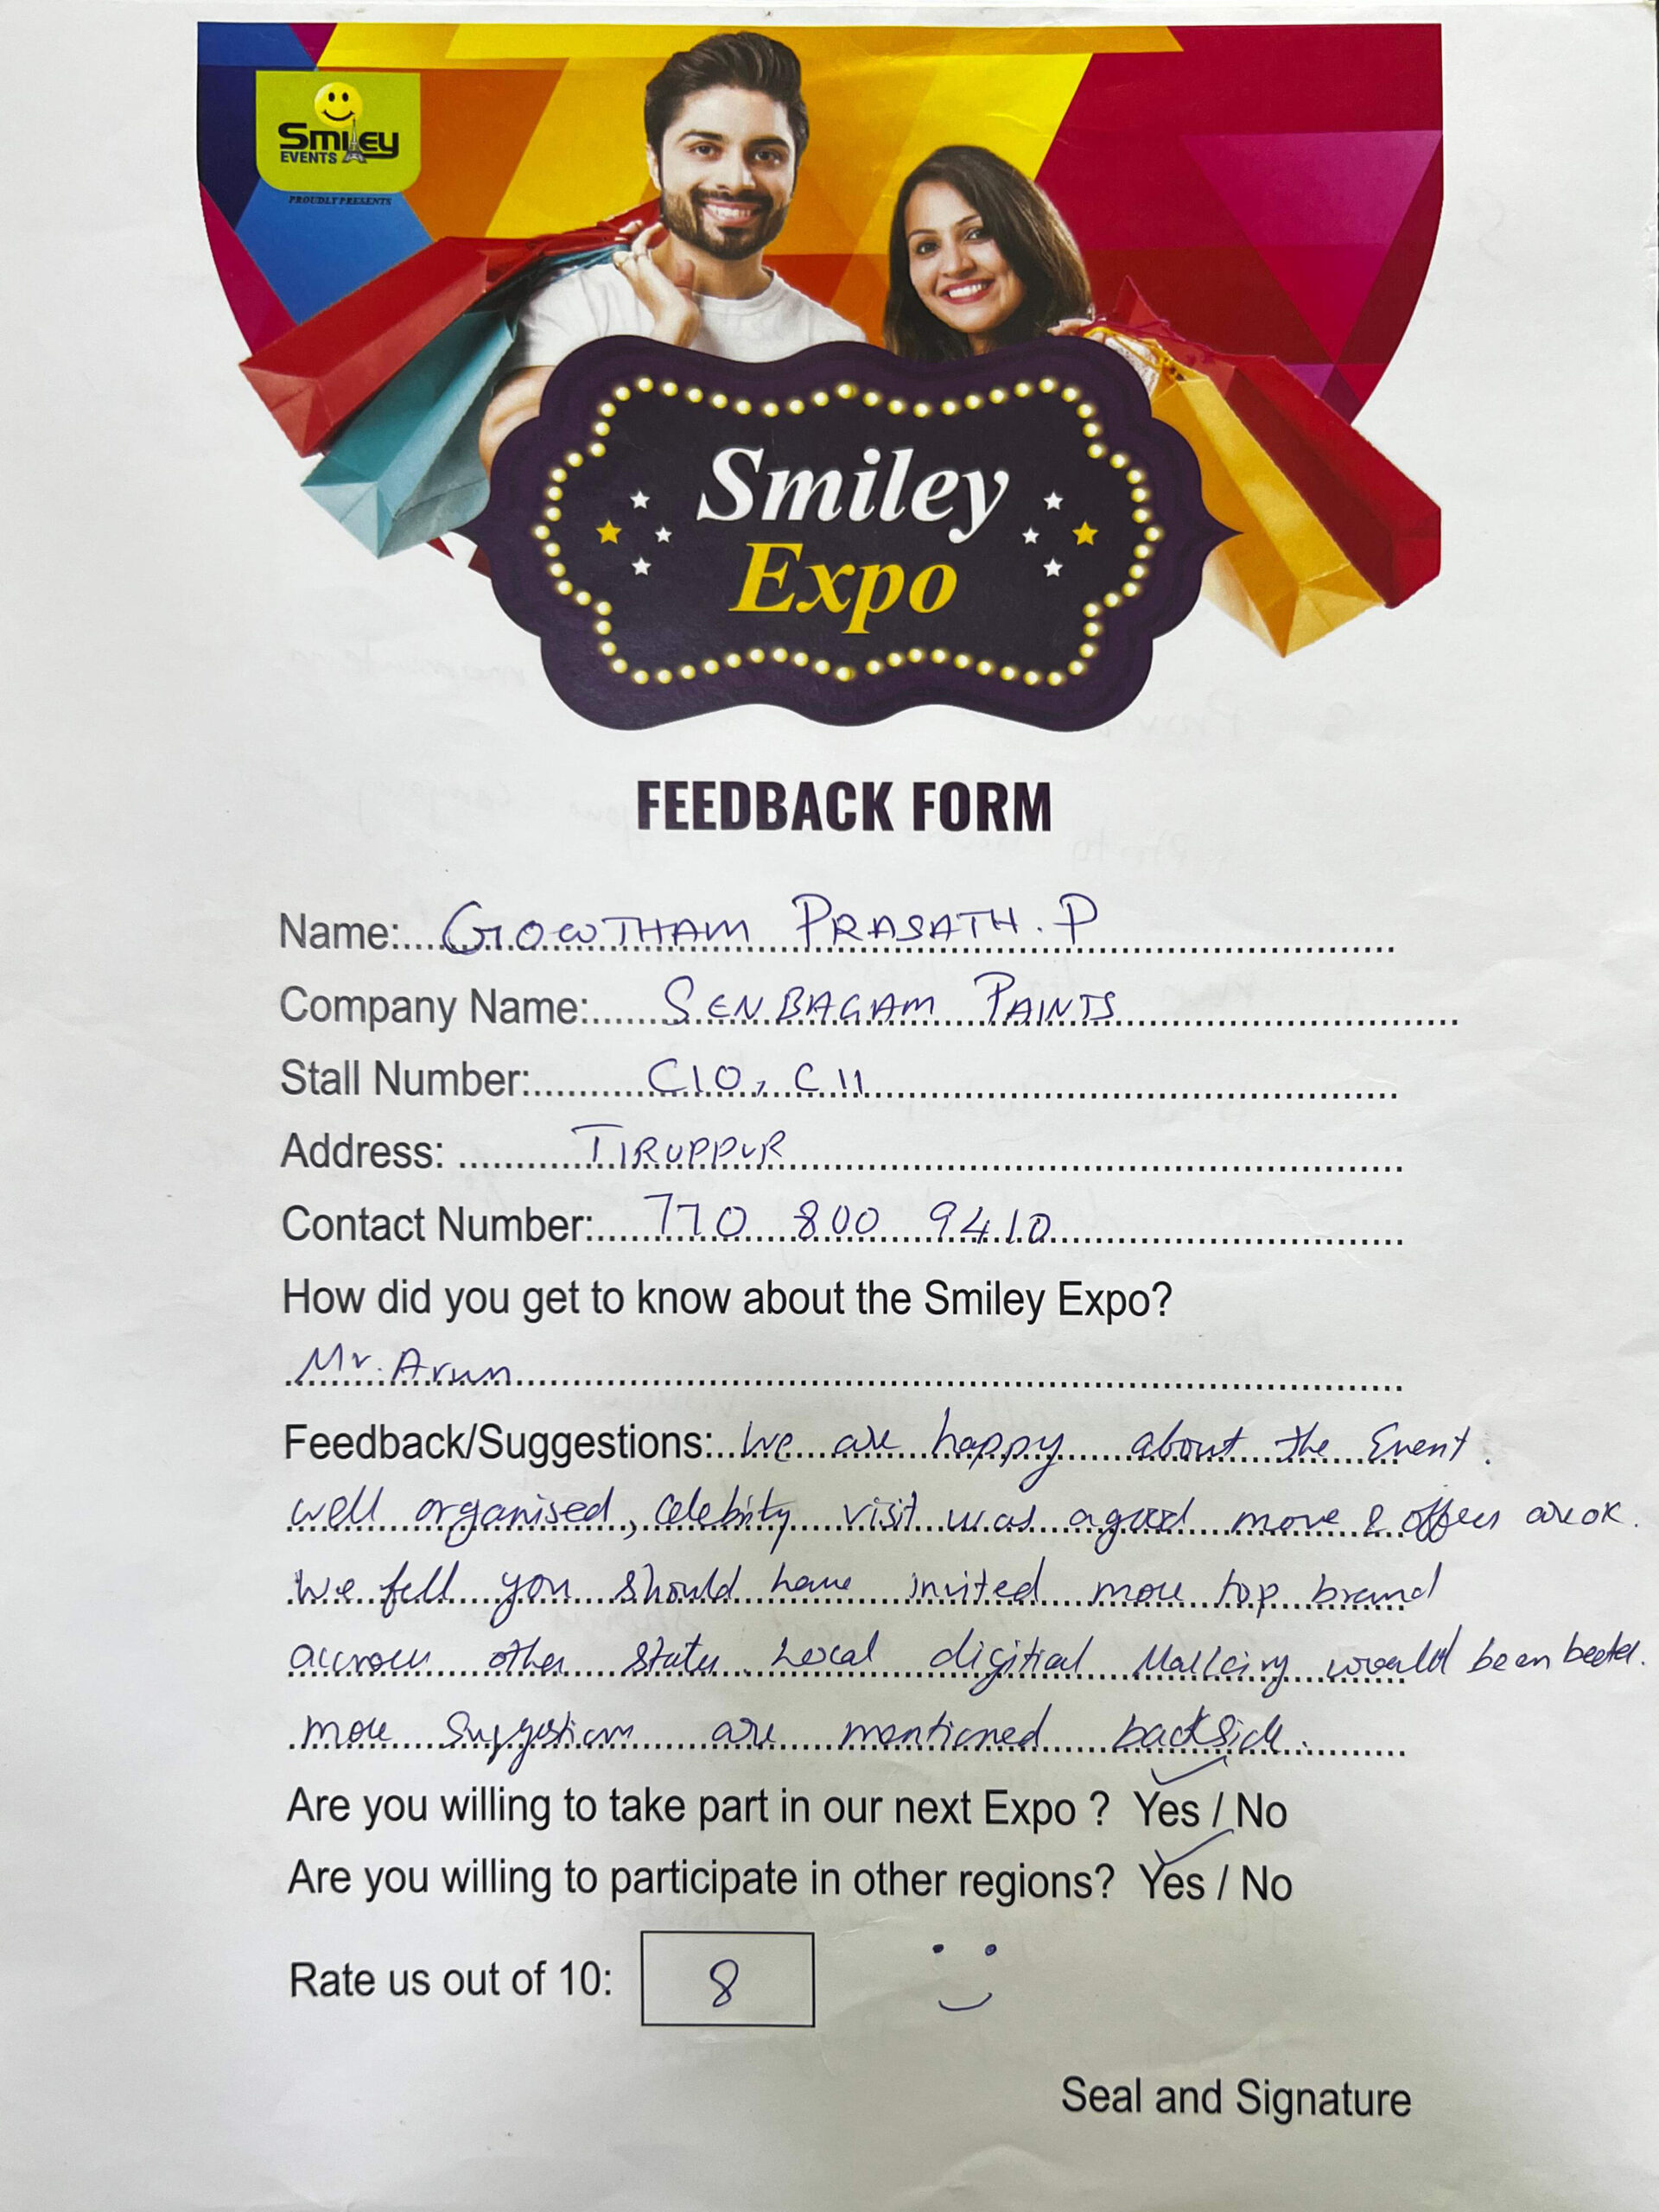 Smiley
EVENTS
PROUDLY PRESENTS
Smiley
Expo
FEEDBACK FORM
Name: GOWTHAM PRASATH. P
Company Name: SENBAGAM PAINTS
Stall Number: C10, C11
Address: TIRUPPUR
Contact Number: 770 800 9410
How did you get to know about the Smiley Expo?
Mr. Arun
Feedback/Suggestions: We are happy about the Event.
well organised, celebrity visit was a good move & offers are ok.
We fell you should have invited more top brand
other states. Local digitial would been
more are mentioned backside.
Are you willing to take part in our next Expo ? Yes / No
Are you willing to participate in other regions? Yes / No
Rate us out of 10: 8
Seal and Signature